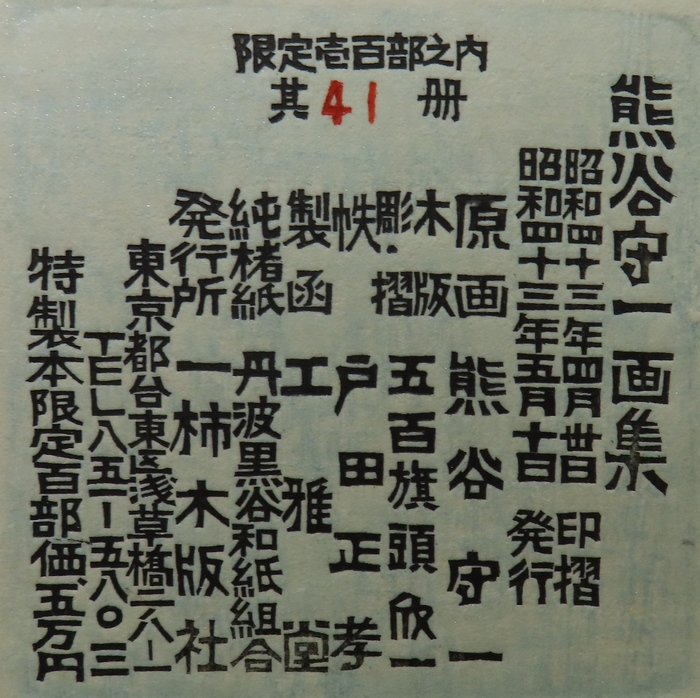 限定壱百部之内
其41册
熊谷守一画集
昭和四十三年四月廿日 印摺
昭和四十三年五月十日 発行
原画 熊谷守一
木版
彫・摺 五百旗頭欣一
帙 戸田正孝
製函 工雅堂
純楮紙 丹波黒谷和紙組合
発行所 一柿木版社
東京都台東区浅草橋二ノ八ノ一
TEL八五一ー五八〇三
特製本限定百部価、五万円